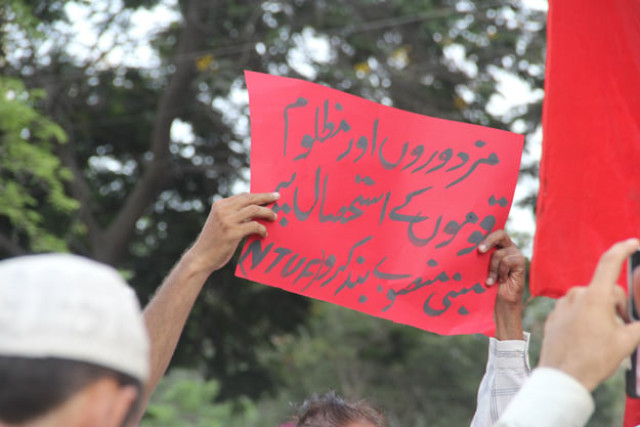 مزدوروں اور مظلوم
قوموں کے استحصال پہ
مبنی منصوبے بند کرو (NTUF)